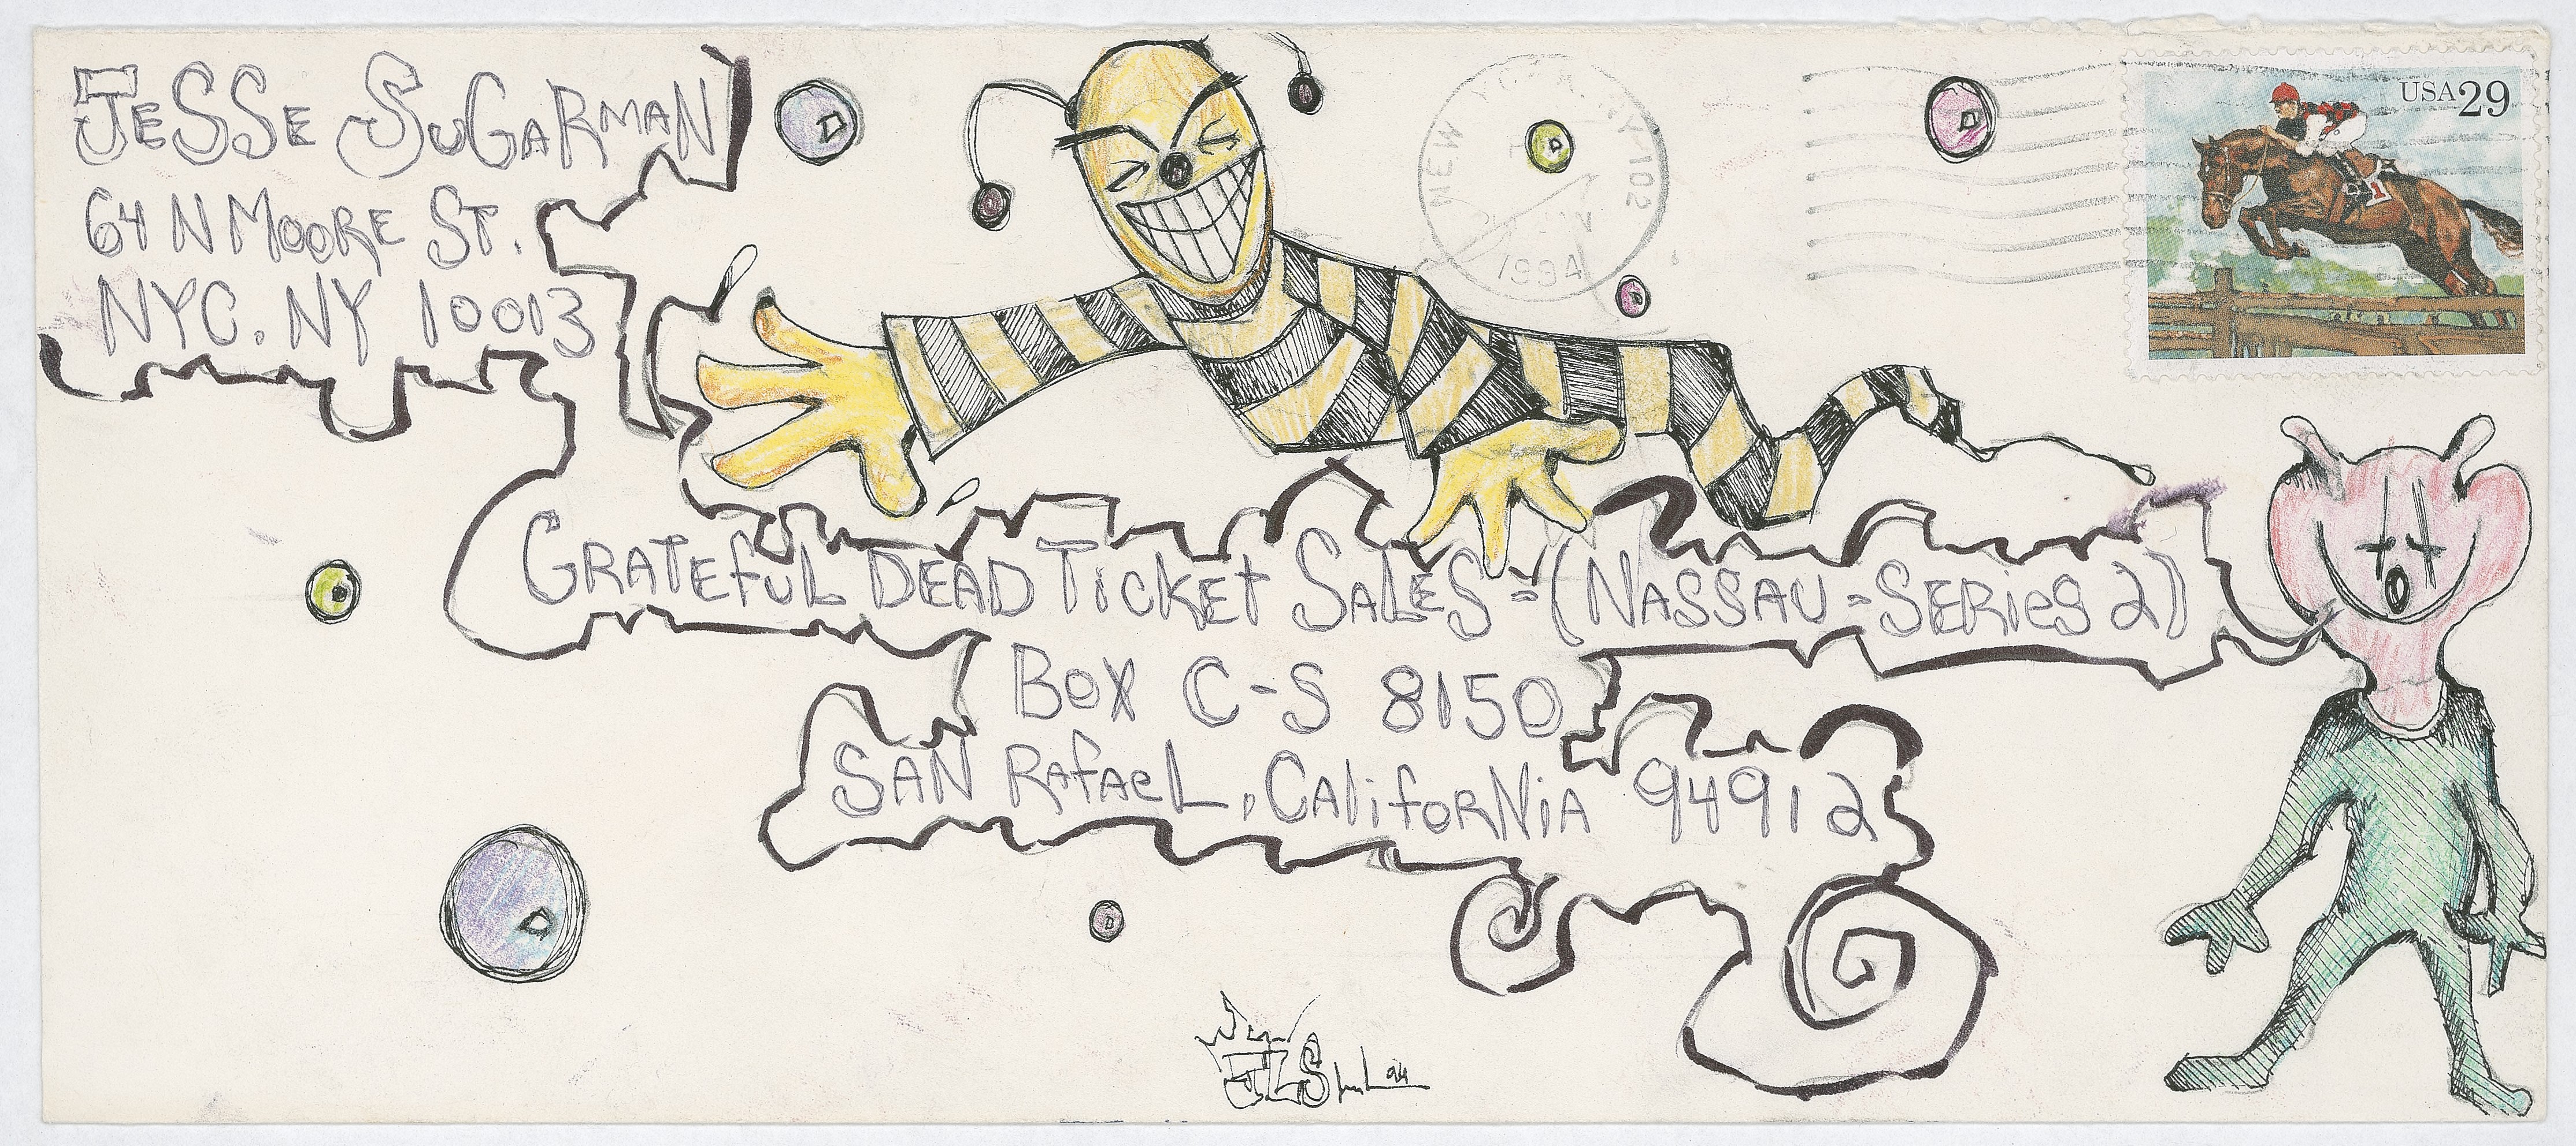 JESSE SUGARMAN
64 N MOORE ST.
NYC. NY 10013
NEW YORK, NY 102
1994
USA 29
GRATEFUL DEAD TICKET SALES = (NASSAU - SERIES 2)
BOX C-S 8150
SAN RAFAEL, CALIFORNIA 94912
JLS
94